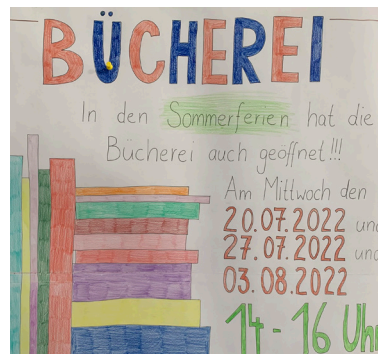 BÜCHEREI
In den Sommerferien hat die
Bücherei auch geöffnet!!!
Am Mittwoch den
20.07.2022 und
27.07.2022 und
03.08.2022
14-16 Uhr